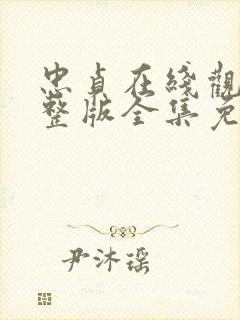 忠貞在綫觀
整版全集免
尹沐瑶